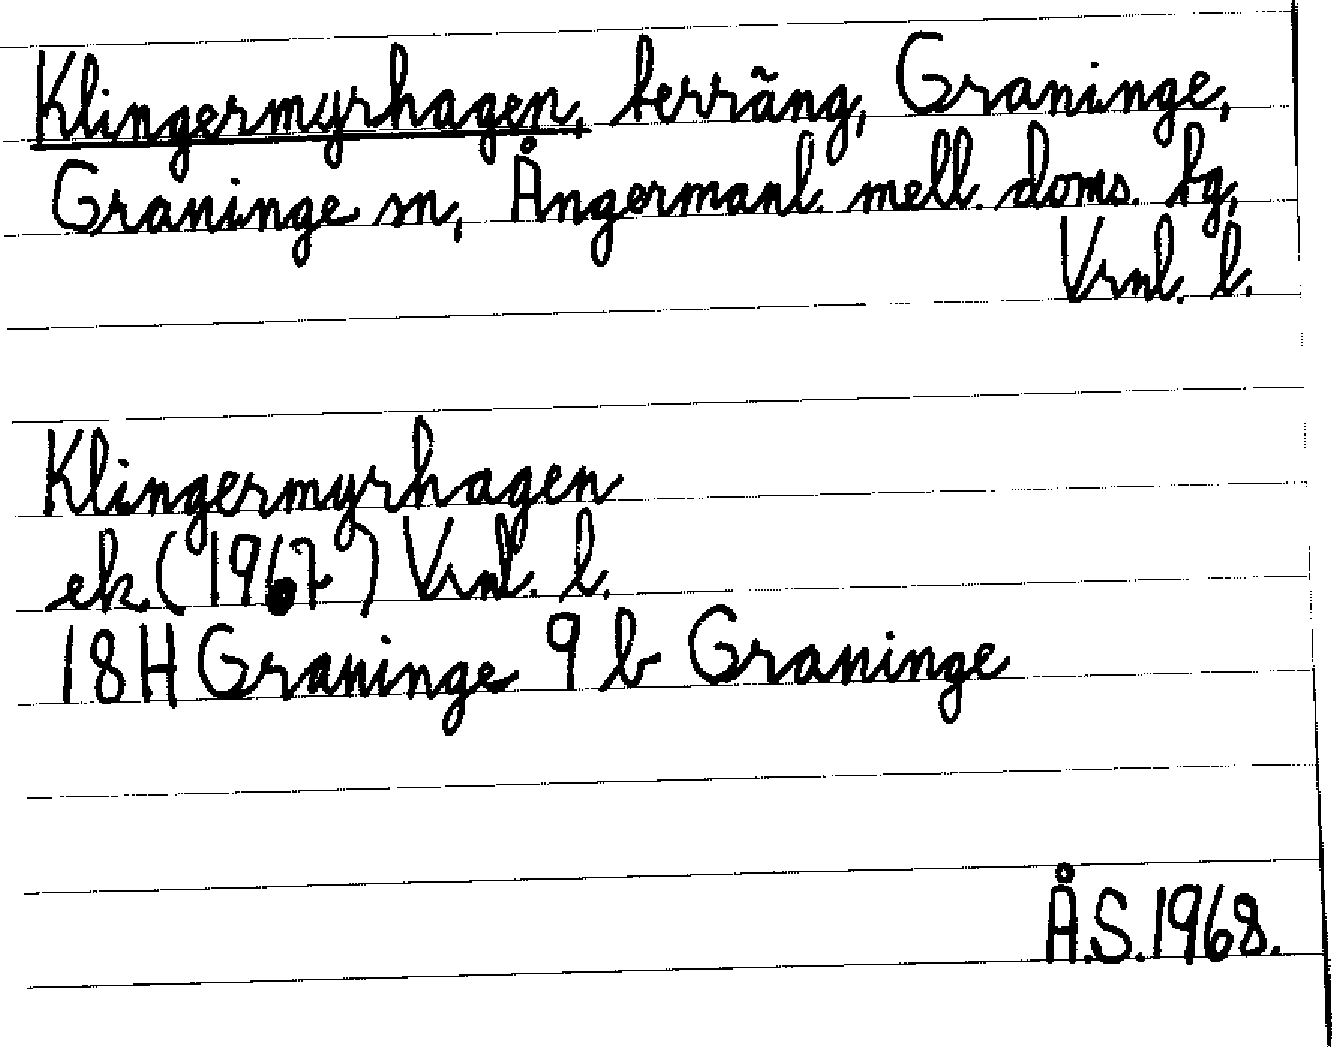 Klingermyrhagen, terräng, Graninge,
Graninge sn, Ångermanl. mell. doms. tg,
Vrnl. l.
Klingermyrhagen
ek. (1967) Vrnl. l.
18H Graninge 9 b Graninge
Å.S. 1968.